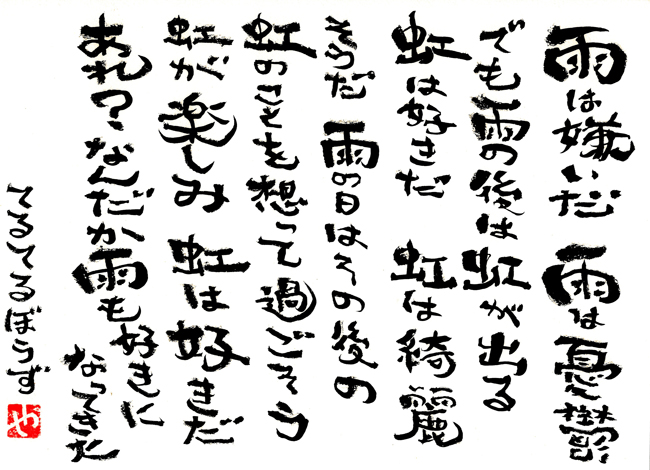 雨は嫌いだ 雨は憂鬱
でも雨の後は虹が出る
虹は好きだ 虹は綺麗
そうだ 雨の日はその後の
虹のことを想って過ごそう
虹が楽しみ 虹は好きだ
あれ?なんだか雨も好きに
なってきた
てるてるぼうず
や